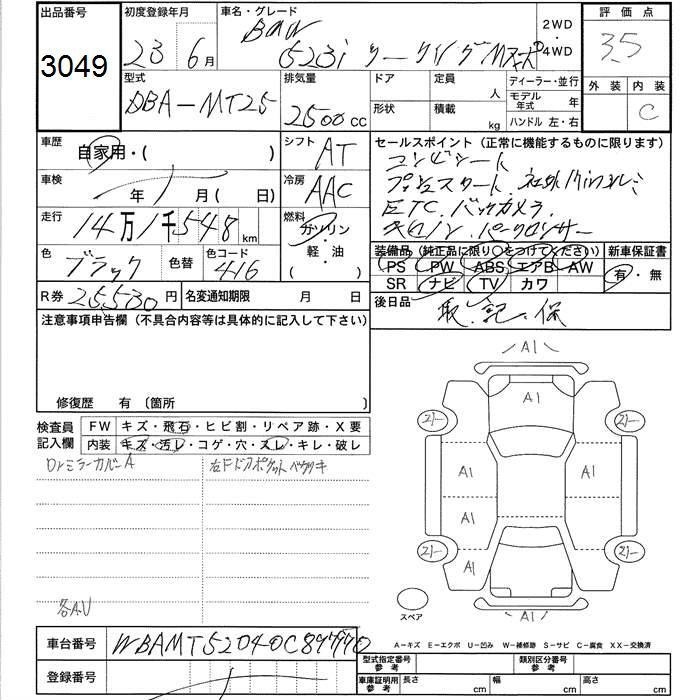 出品番号 初度登録年月 車名・グレード 2WD ・ 4WD 評価点
3049 23年 6月 BMW 523i ツーリング Mスポ 3.5
型式 排気量 ドア 定員 人 ディーラー・並行 外装 内装
DBA-MT25 2500cc 形状 積載 kg モデル年式 年 C
ハンドル 左・右
車歴 自家用・( ) シフト AT セールスポイント(正常に機能するものに限ります)
コンビシート
車検 年 月( 日) 冷房 AAC プッシュスタート、社外
ETC、バックカメラ、
走行 14万1千548km 燃料 ガソリン・軽・油( )
キセノン、パークセンサー
色 ブラック 色替 色コード 416 装備品(純正品に限り○をつけてください) 新車保証書
PS PW ABS エアB AW 有・無
SR ナビ TV カワ
R券 25,530円 名変通知期限 月 日 後日品 取、記、保
注意事項申告欄(不具合内容等は具体的に記入して下さい)
修復歴 有〔箇所 〕
検査員記入欄 FW キズ・飛石・ヒビ割・リペア跡・X要
内装 キズ・汚レ・コゲ・穴・スレ・キレ・破レ
Drミラーカバー A 右Fドアポケット
各A.U
A1
A1
A1 A1
A1
A1
A1
スペア
A-キズ E-エクボ U-凹み W-補修跡 S-サビ C-腐食 XX-交換済
車台番号 WBAMT52040C897440
登録番号
型式指定番号 参考 類別区分番号 参考
車庫証明用 参考 長さ cm 幅 cm 高さ cm